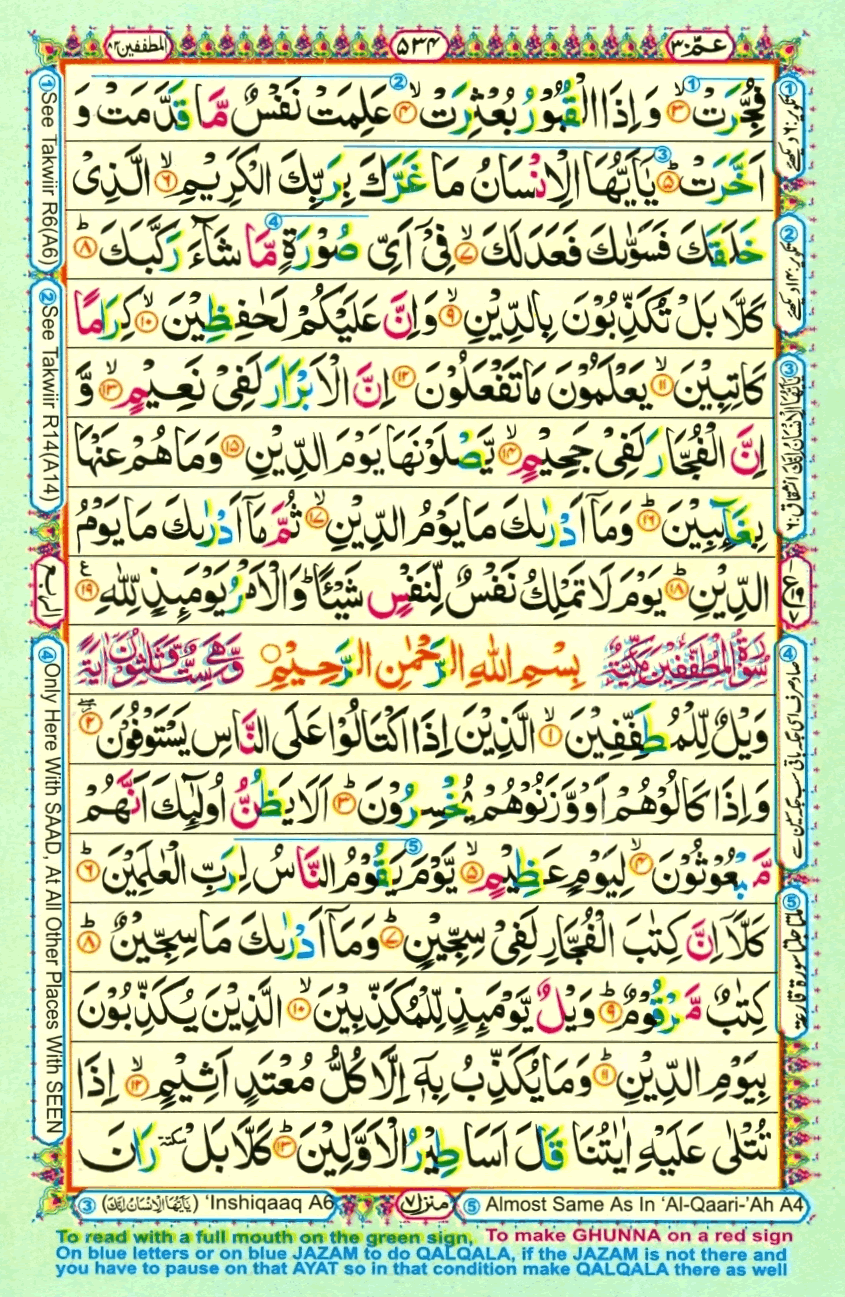 عمّ ۳۰
۵۳۴
المطففين ۸۳
فُجِّرَتْ ۙ‏﴿۳﴾ وَ اِذَا الْقُبُوْرُ بُعْثِرَتْ ۙ‏﴿۴﴾ عَلِمَتْ نَفْسٌ مَّا قَدَّمَتْ وَ
اَخَّرَتْ ؕ‏﴿۵﴾ يٰۤاَيُّهَا الْاِنْسَانُ مَا غَرَّكَ بِرَبِّكَ الْكَرِيْمِ ۙ‏﴿۶﴾ الَّذِىْ
خَلَقَكَ فَسَوّٰٮكَ فَعَدَلَكَ ۙ‏﴿۷﴾ فِىْۤ اَىِّ صُوْرَةٍ مَّا شَآءَ رَكَّبَكَ ؕ‏﴿۸﴾
كَلَّا بَلْ تُكَذِّبُوْنَ بِالدِّيْنِ ۙ‏﴿۹﴾ وَاِنَّ عَلَيْكُمْ لَحٰفِظِيْنَ ۙ‏﴿۱۰﴾ كِرَامًا
كَاتِبِيْنَ ۙ‏﴿۱۱﴾ يَعْلَمُوْنَ مَا تَفْعَلُوْنَ ‏﴿۱۲﴾ اِنَّ الْاَبْرَارَ لَفِىْ نَعِيْمٍ ۙ‏﴿۱۳﴾ وَّ
اِنَّ الْفُجَّارَ لَفِىْ جَحِيْمٍ ۙ‏﴿۱۴﴾ يَّصْلَوْنَهَا يَوْمَ الدِّيْنِ ‏﴿۱۵﴾ وَمَا هُمْ عَنْهَا
بِغَآٮِٕبِيْنَ ؕ‏﴿۱۶﴾ وَمَاۤ اَدْرٰٮكَ مَا يَوْمُ الدِّيْنِ ۙ‏﴿۱۷﴾ ثُمَّ مَاۤ اَدْرٰٮكَ مَا يَوْمُ
الدِّيْنِ ؕ‏﴿۱۸﴾ يَوْمَ لَا تَمْلِكُ نَفْسٌ لِّنَفْسٍ شَيْـًٔا ؕ وَالْاَمْرُ يَوْمَٮِٕذٍ لِّلّٰهِ ‏﴿۱۹﴾
سُوْرَةُ الْمُطَفِّفِيْنَ مَكِّيَّةٌ بِسْمِ اللّٰهِ الرَّحْمٰنِ الرَّحِيْمِ وَّهِىَ سِتٌّ وَّثَلٰثُوْنَ اٰيَةً
وَيْلٌ لِّلْمُطَفِّفِيْنَ ۙ‏﴿۱﴾ الَّذِيْنَ اِذَا اكْتَالُوْا عَلَى النَّاسِ يَسْتَوْفُوْنَ ‏﴿۲﴾
وَاِذَا كَالُوْهُمْ اَوْ وَّزَنُوْهُمْ يُخْسِرُوْنَ ؕ‏﴿۳﴾ اَلَا يَظُنُّ اُولٰٓٮِٕكَ اَنَّهُمْ
مَّبْعُوْثُوْنَ ۙ‏﴿۴﴾ لِيَوْمٍ عَظِيْمٍ ۙ‏﴿۵﴾ يَّوْمَ يَقُوْمُ النَّاسُ لِرَبِّ الْعٰلَمِيْنَ ؕ‏﴿۶﴾
كَلَّاۤ اِنَّ كِتٰبَ الْفُجَّارِ لَفِىْ سِجِّيْنٍ ؕ‏﴿۷﴾ وَمَاۤ اَدْرٰٮكَ مَا سِجِّيْنٌ ؕ‏﴿۸﴾
كِتٰبٌ مَّرْقُوْمٌ ؕ‏﴿۹﴾ وَيْلٌ يَّوْمَٮِٕذٍ لِّلْمُكَذِّبِيْنَ ۙ‏﴿۱۰﴾ الَّذِيْنَ يُكَذِّبُوْنَ
بِيَوْمِ الدِّيْنِ ؕ‏﴿۱۱﴾ وَمَا يُكَذِّبُ بِهٖۤ اِلَّا كُلُّ مُعْتَدٍ اَثِيْمٍ ۙ‏﴿۱۲﴾ اِذَا
تُتْلٰى عَلَيْهِ اٰيٰتُنَا قَالَ اَسَاطِيْرُ الْاَوَّلِيْنَ ؕ‏﴿۱۳﴾ كَلَّا بَلْ سكتة رَانَ
① تکویر: ۶ دیکھئے
② تکویر: ۱۴ دیکھئے
③ يٰۤاَيُّهَا الْاِنْسَانُ اِنَّكَ انشقاق: ۶
④ صاد صرف اسی جگہ باقی سب جگہ سین سے
⑤ ملتا جلتا سورۃ قارعۃ
① See Takwiir R6(A6)
② See Takwiir R14(A14)
الربع
④ Only Here With SAAD, At All Other Places With SEEN
③ (يٰۤاَيُّهَا الْاِنْسَانُ اِنَّكَ) 'Inshiqaaq A6
منزل ۷
⑤ Almost Same As In 'Al-Qaari-'Ah A4
To read with a full mouth on the green sign, To make GHUNNA on a red sign
On blue letters or on blue JAZAM to do QALQALA, if the JAZAM is not there and
you have to pause on that AYAT so in that condition make QALQALA there as well